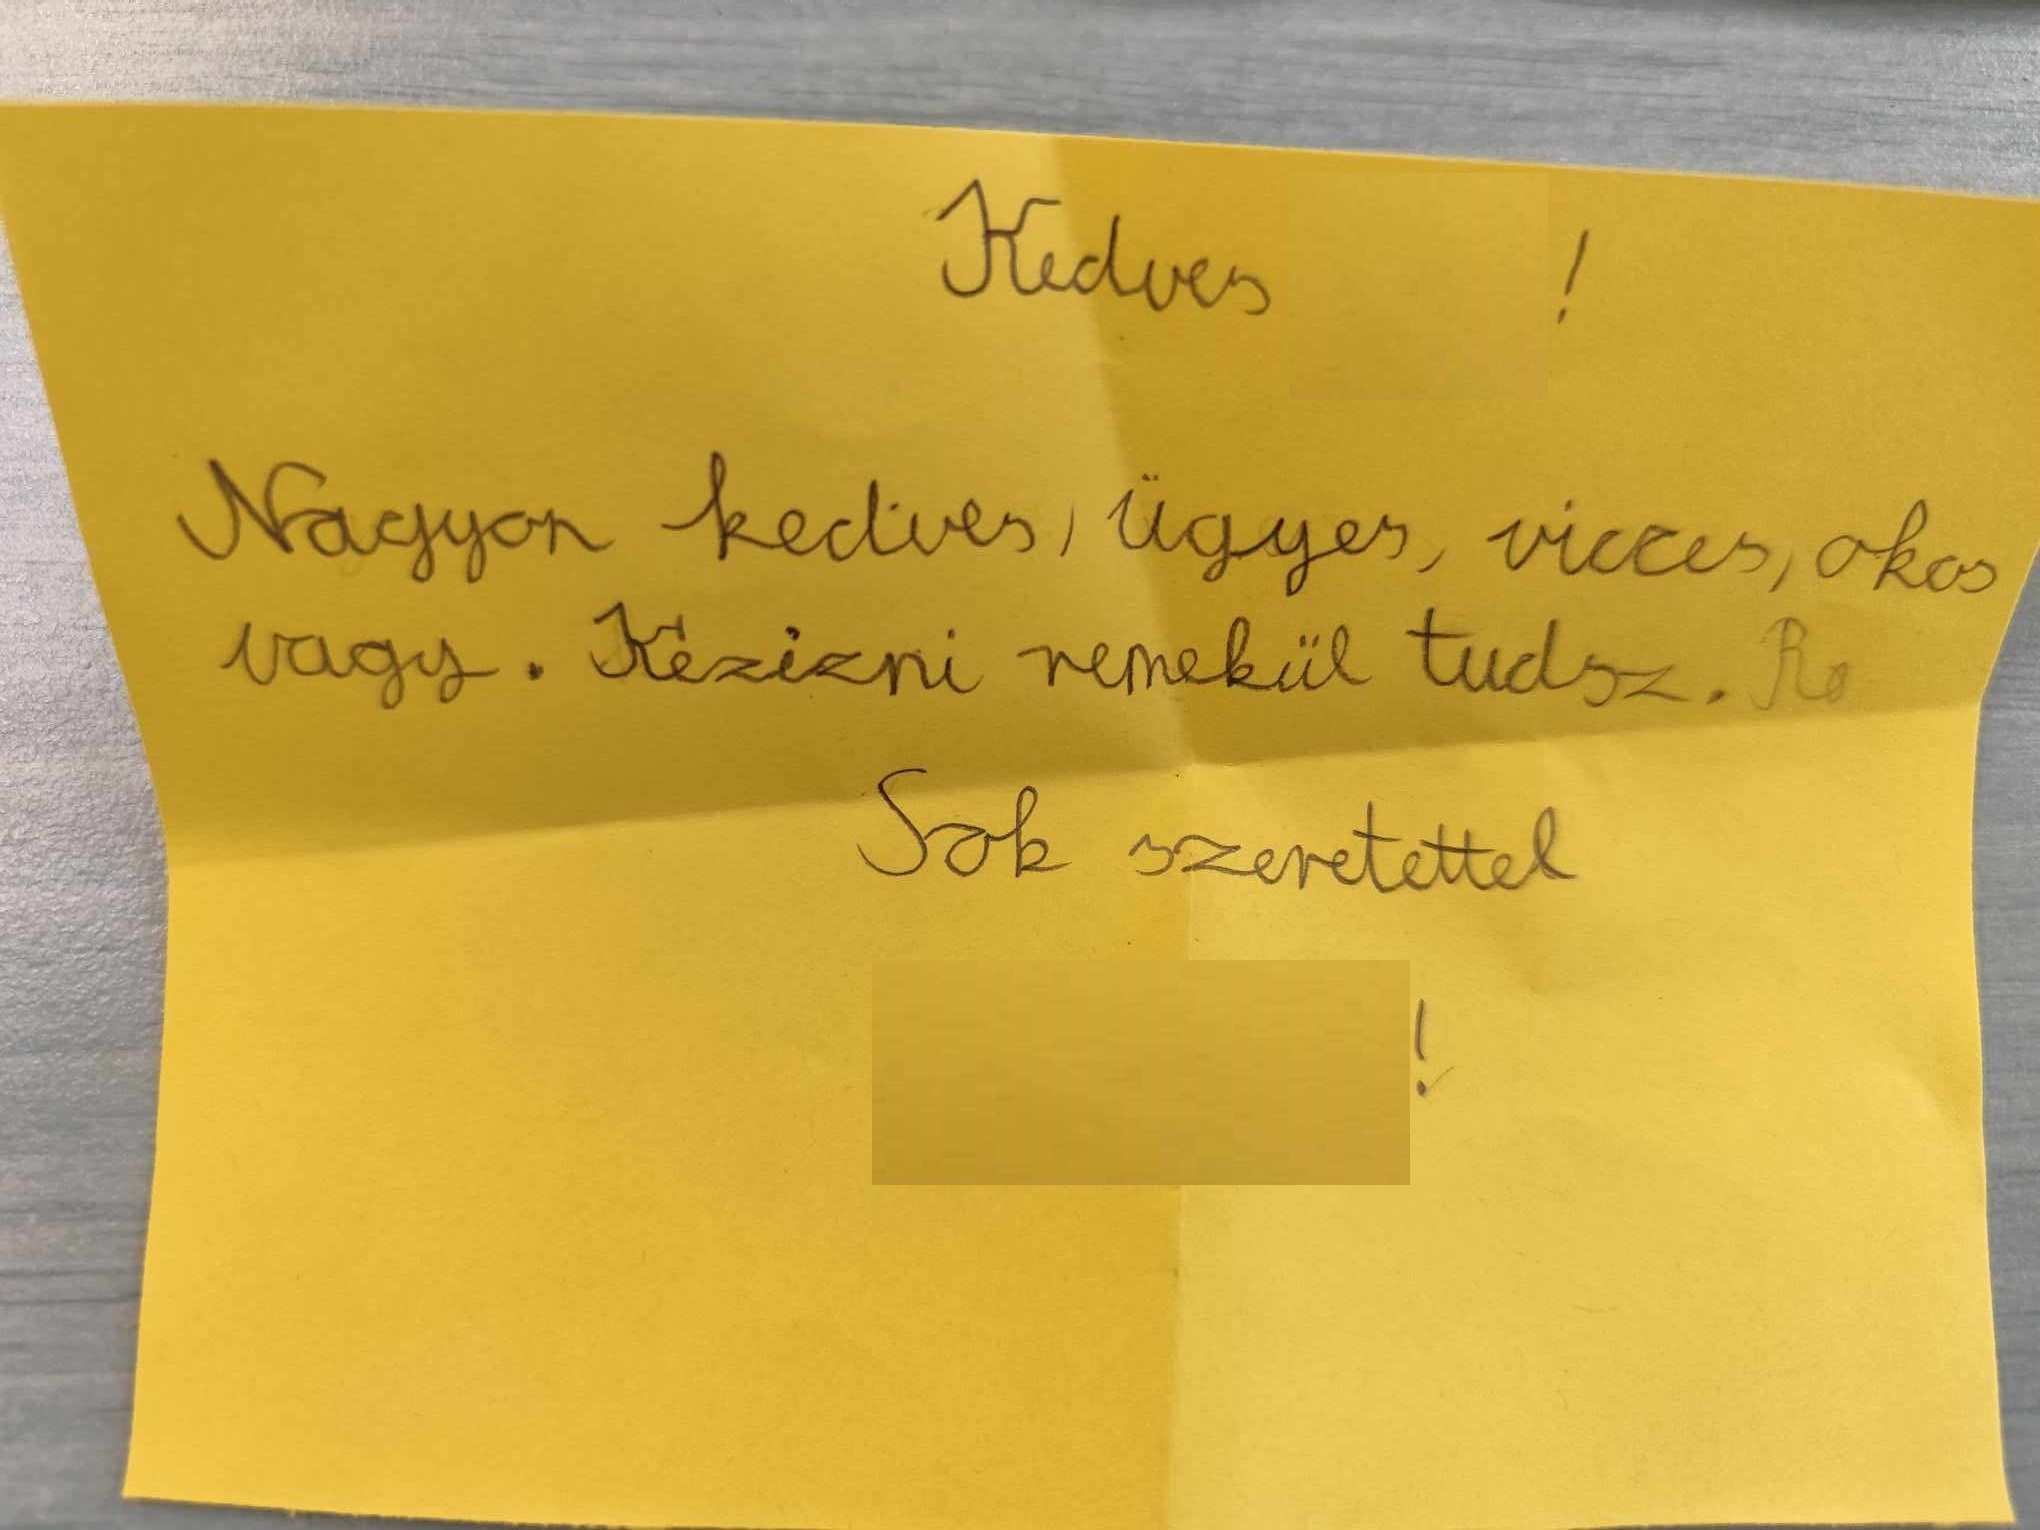 Kedves !
Nagyon kedves, ügyes, vicces, okos
vagy. Kézizni remekül tudsz.
Sok szeretettel
!